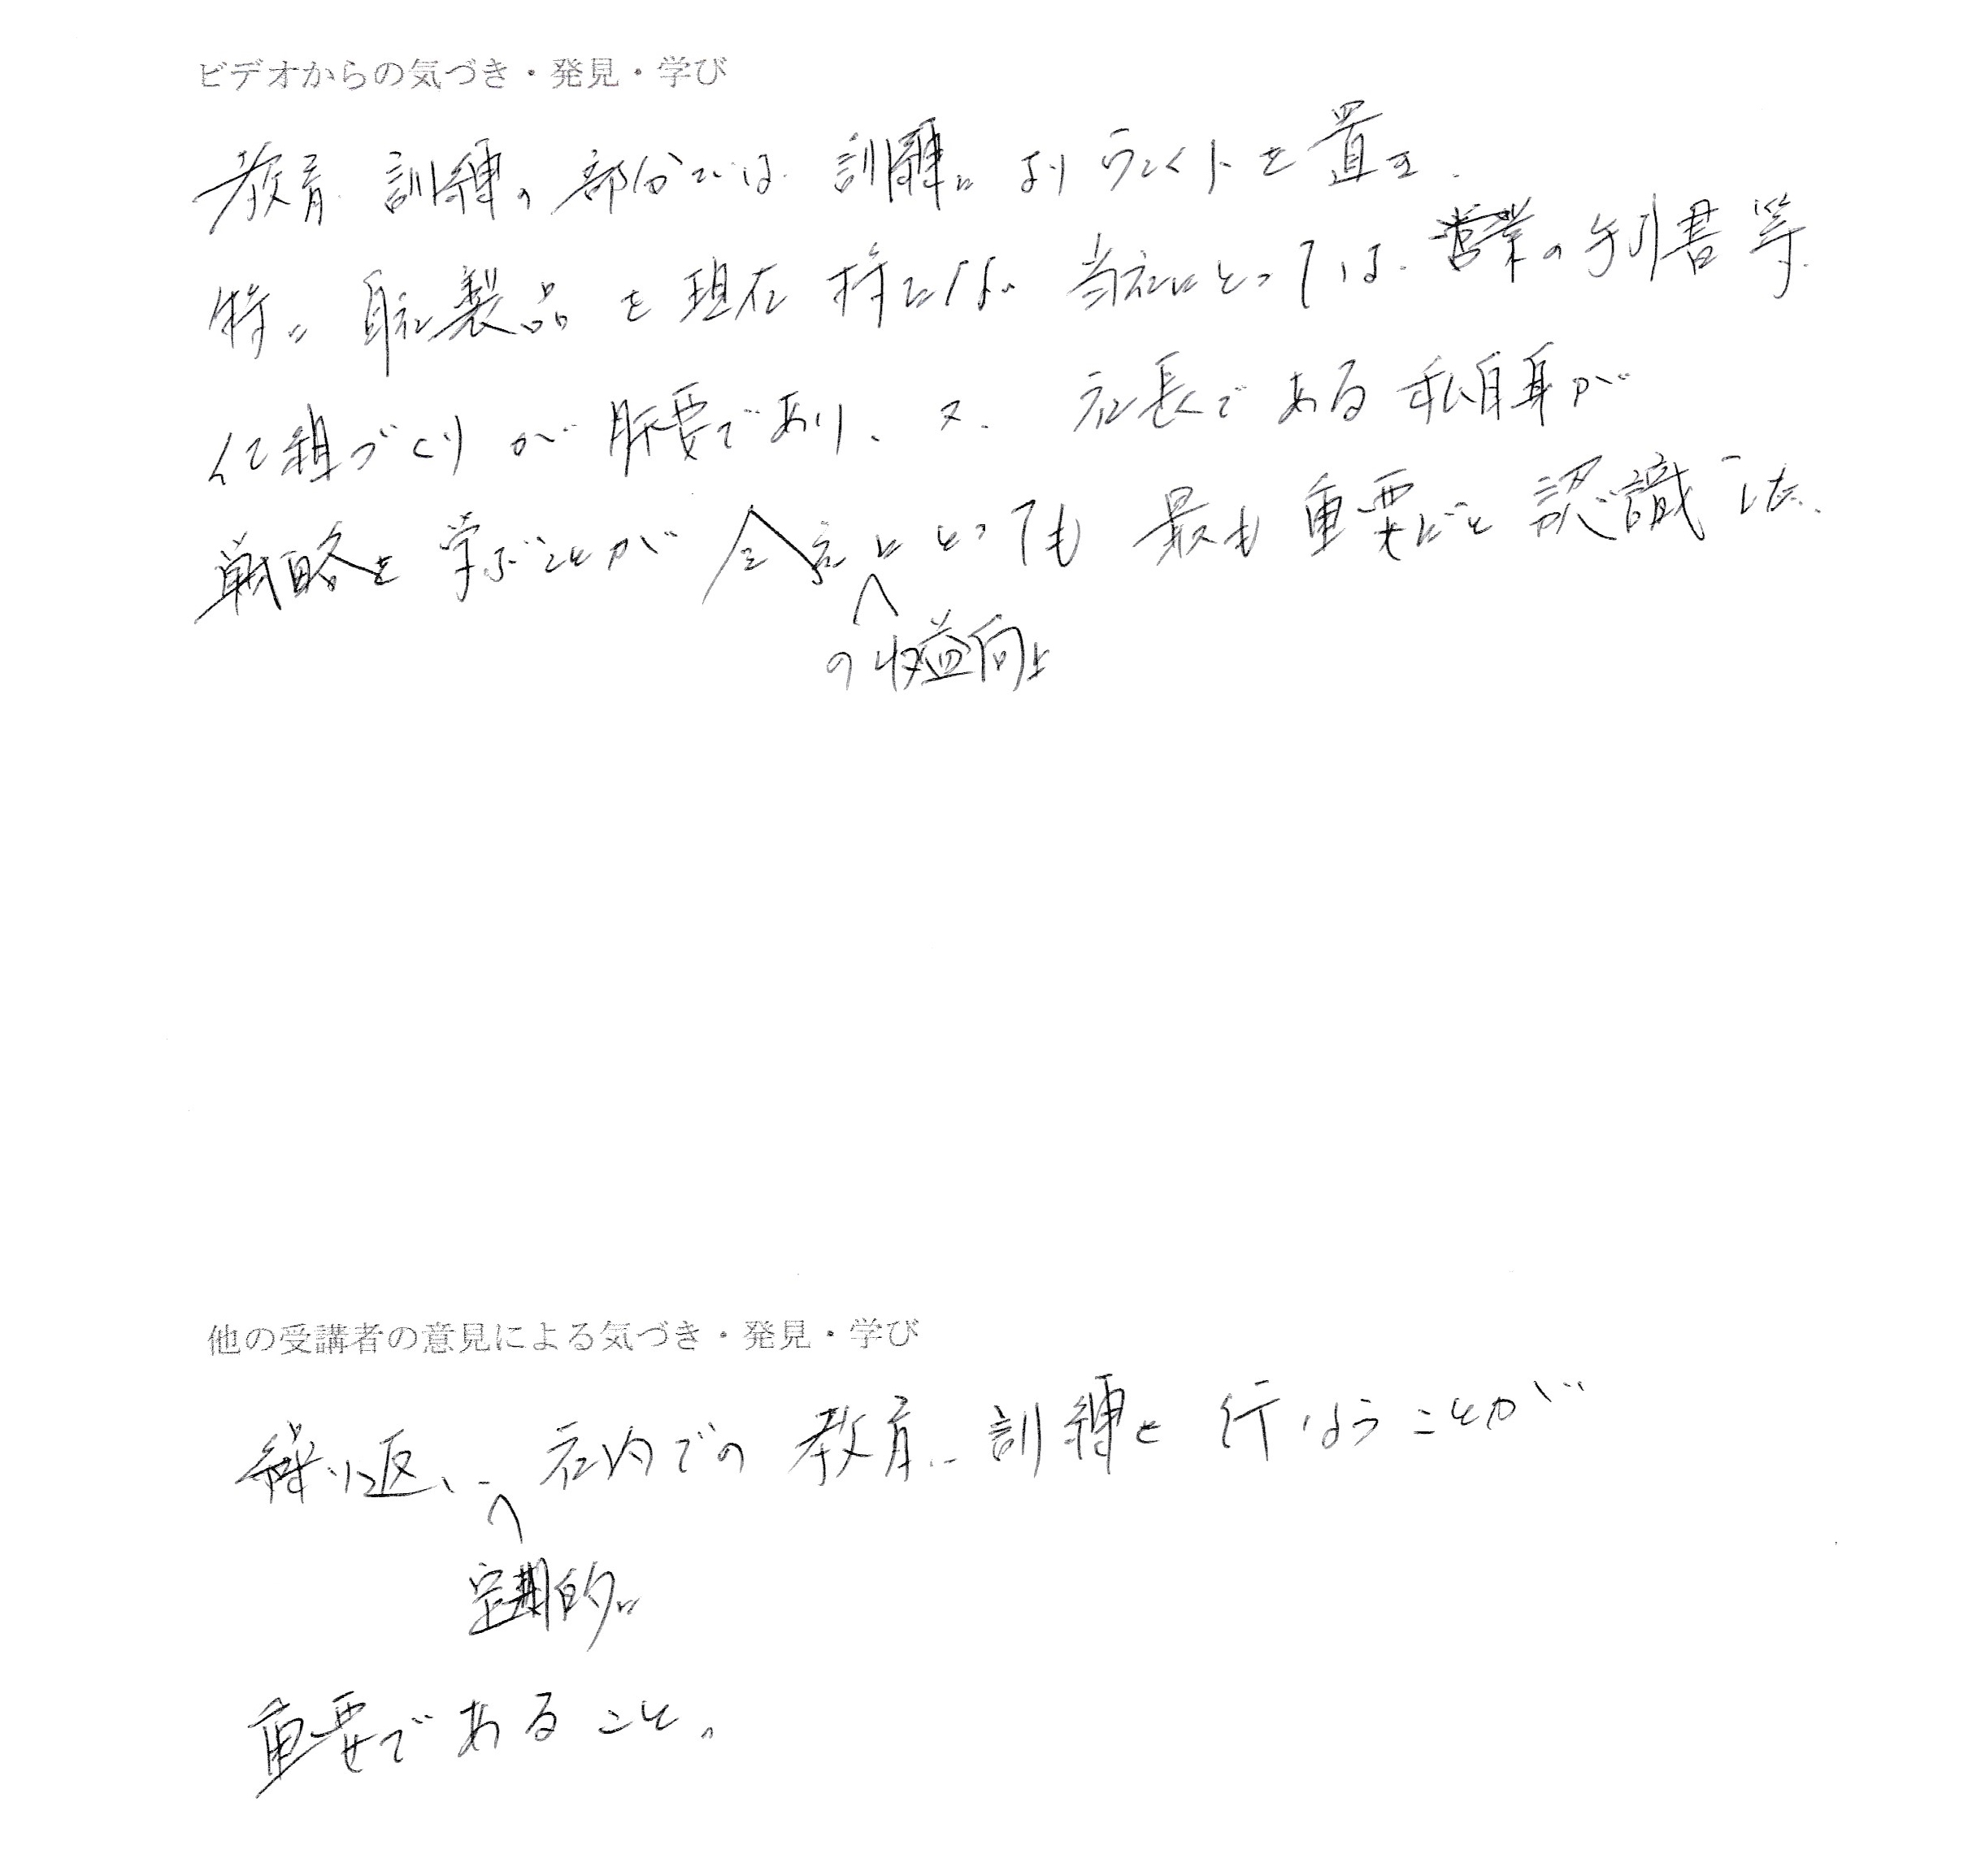 ビデオからの気づき・発見・学び
教育訓練の部分では訓練によりウェイトを置き、
特に自社製品を現在持たない当社にとっては、営業の手引書等、
仕組づくりが肝要であり、又、社長である私自身が
戦略を学ぶことが会社にとっても最も重要だと認識した。
の収益向上
他の受講者の意見による気づき・発見・学び
繰り返し、社内での教育、訓練を行なうことが
定期的に
重要であること。